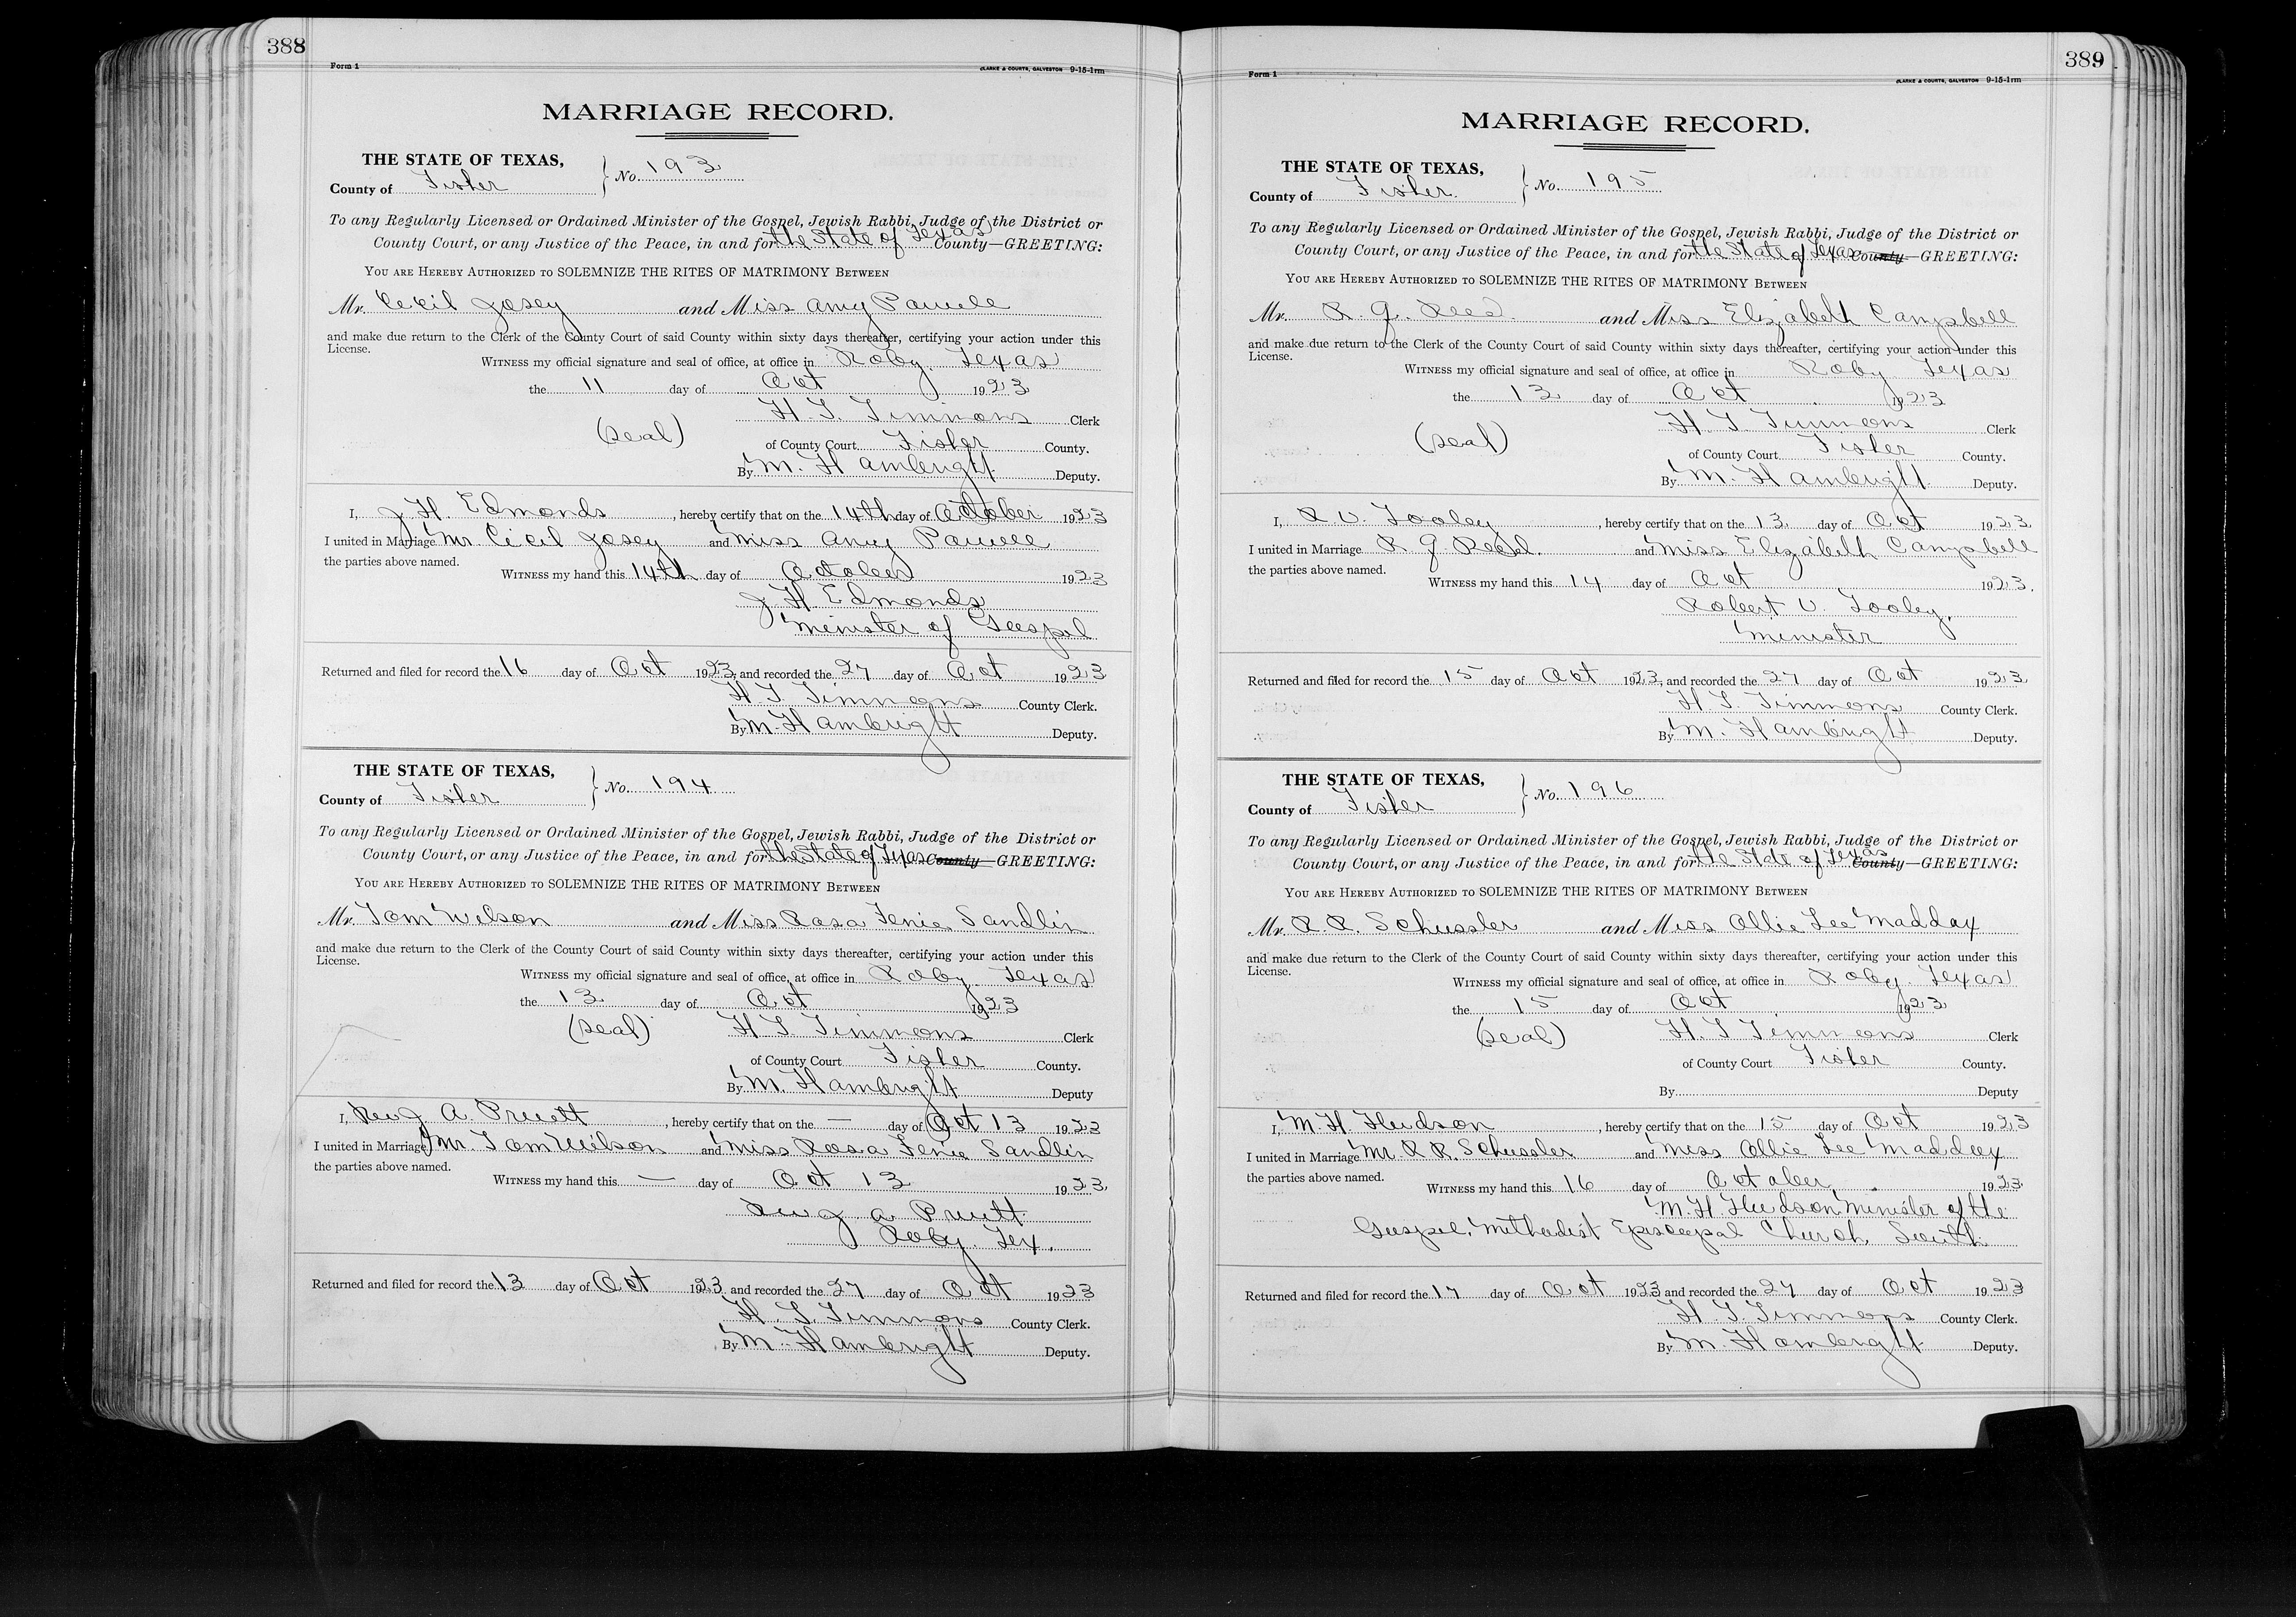 388
Form 1
CLARKE & COURTS, GALVESTON 9-15-1rm
MARRIAGE RECORD.
THE STATE OF TEXAS,
County of Fisher
No. 193
To any Regularly Licensed or Ordained Minister of the Gospel, Jewish Rabbi, Judge of the District or
County Court, or any Justice of the Peace, in and for the State of Texas County—GREETING:
YOU ARE HEREBY AUTHORIZED TO SOLEMNIZE THE RITES OF MATRIMONY BETWEEN
Mr. Cecil Josey and Miss Amy Powell
and make due return to the Clerk of the County Court of said County within sixty days thereafter, certifying your action under this
License.
WITNESS my official signature and seal of office, at office in Roby, Texas
the 11 day of Oct 1923
H. S. Timmons Clerk
(seal)
of County Court Fisher County.
By M. Hambright Deputy.
I, J. H. Edmonds, hereby certify that on the 14th day of October 1923
I united in Marriage Mr. Cecil Josey and Miss Amy Powell
the parties above named.
WITNESS my hand this 14th day of October 1923
J H Edmonds
Minister of Gospel
Returned and filed for record the 16 day of Oct 1923, and recorded the 27 day of Oct 1923
H S Timmons County Clerk.
By M. Hambright Deputy.
THE STATE OF TEXAS,
County of Fisher
No. 194
To any Regularly Licensed or Ordained Minister of the Gospel, Jewish Rabbi, Judge of the District or
County Court, or any Justice of the Peace, in and for the State of Texas County—GREETING:
YOU ARE HEREBY AUTHORIZED TO SOLEMNIZE THE RITES OF MATRIMONY BETWEEN
Mr. Tom Wilson and Miss Rosa Fenie Sandlin
and make due return to the Clerk of the County Court of said County within sixty days thereafter, certifying your action under this
License.
WITNESS my official signature and seal of office, at office in Roby, Texas
the 13 day of Oct 1923
(seal) H S Timmons Clerk
of County Court Fisher County.
By M. Hambright Deputy
I, Rev J A. Pruett, hereby certify that on the — day of Oct 13 1923
I united in Marriage Mr. Tom Wilson and Miss Rosa Fenie Sandlin
the parties above named.
WITNESS my hand this — day of Oct 13 1923
Rev J A Pruett
Roby. Tex.
Returned and filed for record the 13 day of Oct 1923 and recorded the 27 day of Oct 1923
H. S. Timmons County Clerk.
By M. Hambright Deputy.
389
Form 1
CLARKE & COURTS, GALVESTON 9-15-1rm
MARRIAGE RECORD.
THE STATE OF TEXAS,
County of Fisher.
No. 195
To any Regularly Licensed or Ordained Minister of the Gospel, Jewish Rabbi, Judge of the District or
County Court, or any Justice of the Peace, in and for the State of Texas County—GREETING:
YOU ARE HEREBY AUTHORIZED TO SOLEMNIZE THE RITES OF MATRIMONY BETWEEN
Mr. R. J. Reed. and Miss Elizabeth Campbell
and make due return to the Clerk of the County Court of said County within sixty days thereafter, certifying your action under this
License.
WITNESS my official signature and seal of office, at office in Roby Texas
the 13 day of Oct 1923
H. S. Timmons Clerk
(seal)
of County Court Fisher County.
By M. Hambright Deputy.
I, R V. Tooley, hereby certify that on the 13 day of Oct 1923
I united in Marriage R J Reed. and Miss Elizabeth Campbell
the parties above named.
WITNESS my hand this 14 day of Oct 1923.
Robert V. Tooley,
Minister
Returned and filed for record the 15 day of Oct 1923, and recorded the 27 day of Oct 1923
H S. Timmons County Clerk.
By M. Hambright Deputy.
THE STATE OF TEXAS,
County of Fisher
No. 196
To any Regularly Licensed or Ordained Minister of the Gospel, Jewish Rabbi, Judge of the District or
County Court, or any Justice of the Peace, in and for the State of Texas County—GREETING:
YOU ARE HEREBY AUTHORIZED TO SOLEMNIZE THE RITES OF MATRIMONY BETWEEN
Mr. R. R. Schussler and Miss Ollie Lee Maddox
and make due return to the Clerk of the County Court of said County within sixty days thereafter, certifying your action under this
License.
WITNESS my official signature and seal of office, at office in Roby. Texas
the 15 day of Oct 1923
(seal) H. S Timmons Clerk
of County Court Fisher County.
By Deputy
I, M. H. Hudson, hereby certify that on the 15 day of Oct 1923
I united in Marriage Mr R R. Schussler and Miss Ollie Lee Maddox
the parties above named.
WITNESS my hand this 16 day of October 1923
M. H. Hudson Minister of the
Gospel, Methodist Episcopal Church, South
Returned and filed for record the 17 day of Oct 1923 and recorded the 27 day of Oct 1923
H. S. Timmons County Clerk.
By M. Hambright Deputy.